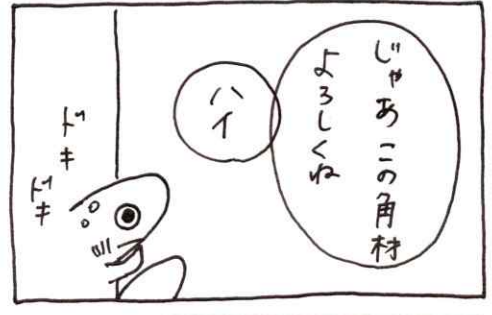 じゃあこの角材
よろしくね
ハイ
ドキ
ドキ